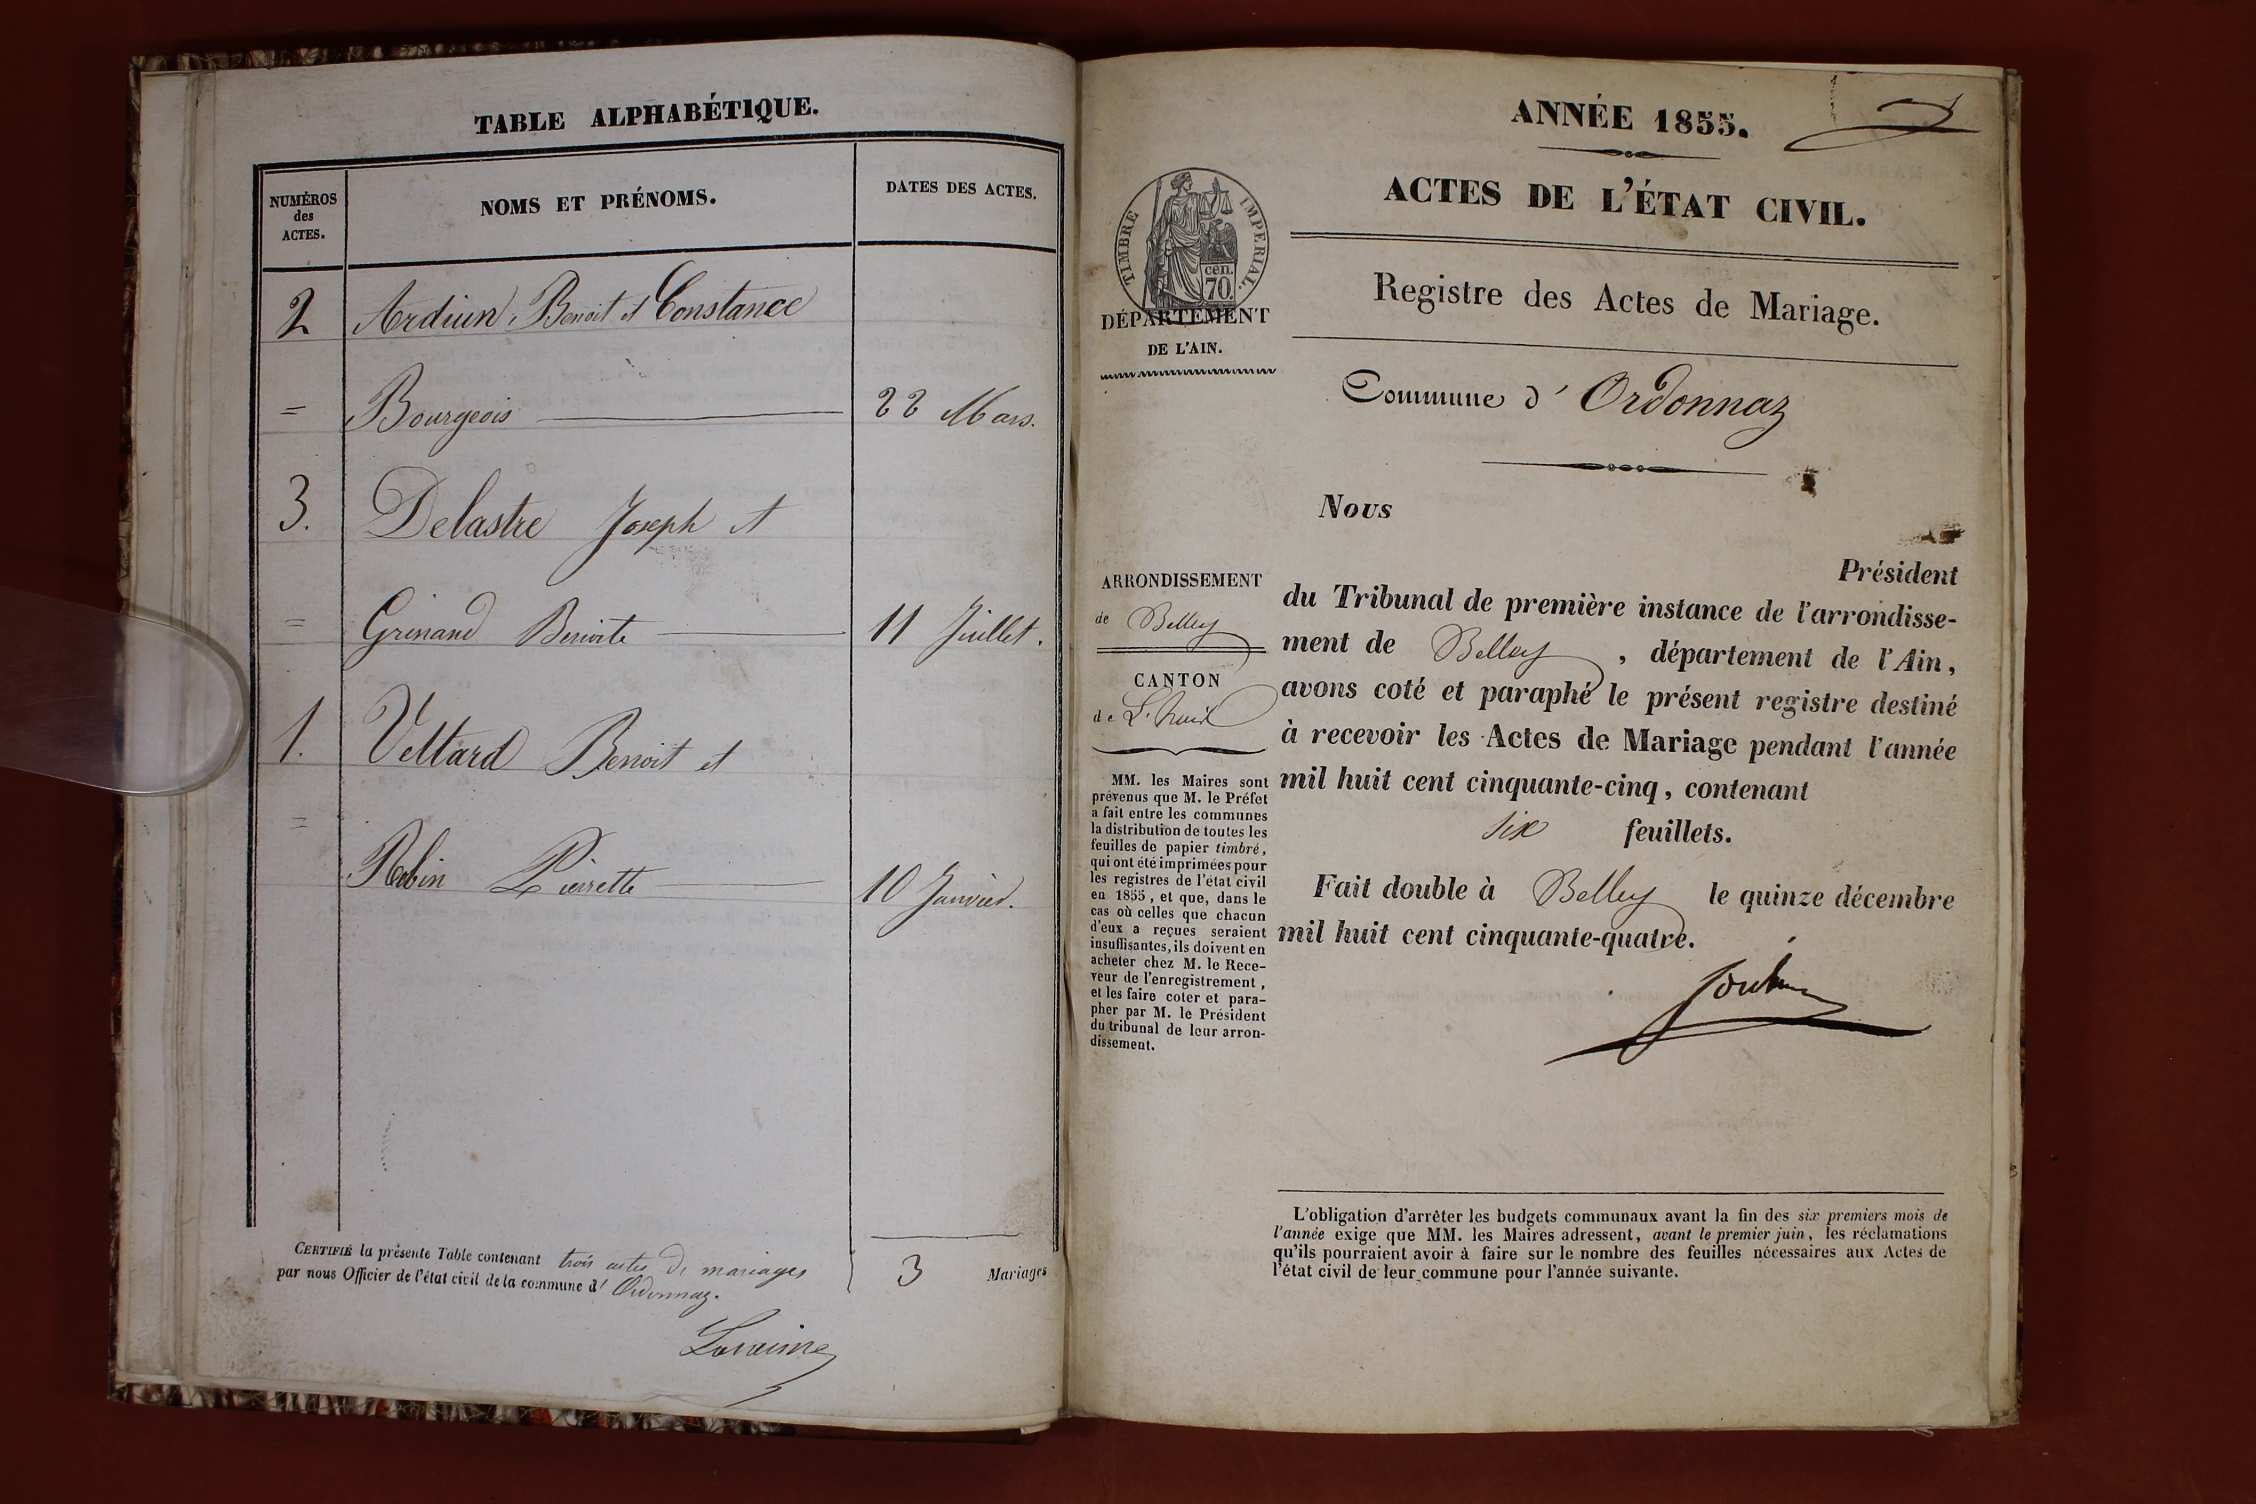 TABLE ALPHABÉTIQUE.
NUMÉROS
des
ACTES.
NOMS ET PRÉNOMS.
DATES DES ACTES.
2 Benoit et Constance
= Bourgeois 22 Mars.
3. Delastre Joseph et
= Grinand Benoite 11 Juillet.
1. Veltard Benoit et
=
Rubin Pierrette 10 Janvier.
CERTIFIÉ la présente Table contenant trois actes de mariages
par nous Officier de l'état civil de la commune d' Ordonnaz.
3 Mariages
ANNÉE 1855.
ACTES DE L'ÉTAT CIVIL.
TIMBRE IMPERIAL.
cen.
70.
DÉPARTEMENT
DE L'AIN.
Registre des Actes de Mariage.
Commune d' Ordonnaz
Nous
Président
du Tribunal de première instance de l'arrondisse-
ment de Belley , département de l'Ain,
avons coté et paraphé le présent registre destiné
à recevoir les Actes de Mariage pendant l'année
mil huit cent cinquante-cinq, contenant
six feuillets.
Fait double à Belley le quinze décembre
mil huit cent cinquante-quatre.
ARRONDISSEMENT
de Belley
CANTON
de
MM. les Maires sont
prévenus que M. le Préfet
a fait entre les communes
la distribution de toutes les
feuilles de papier timbré,
qui ont été imprimées pour
les registres de l'état civil
en 1855, et que, dans le
cas où celles que chacun
d'eux a reçues seraient
insuffisantes, ils doivent en
acheter chez M. le Rece-
veur de l'enregistrement,
et les faire coter et para-
pher par M. le Président
du tribunal de leur arron-
dissement.
L'obligation d'arrêter les budgets communaux avant la fin des six premiers mois de
l'année exige que MM. les Maires adressent, avant le premier juin, les réclamations
qu'ils pourraient avoir à faire sur le nombre des feuilles nécessaires aux Actes de
l'état civil de leur commune pour l'année suivante.